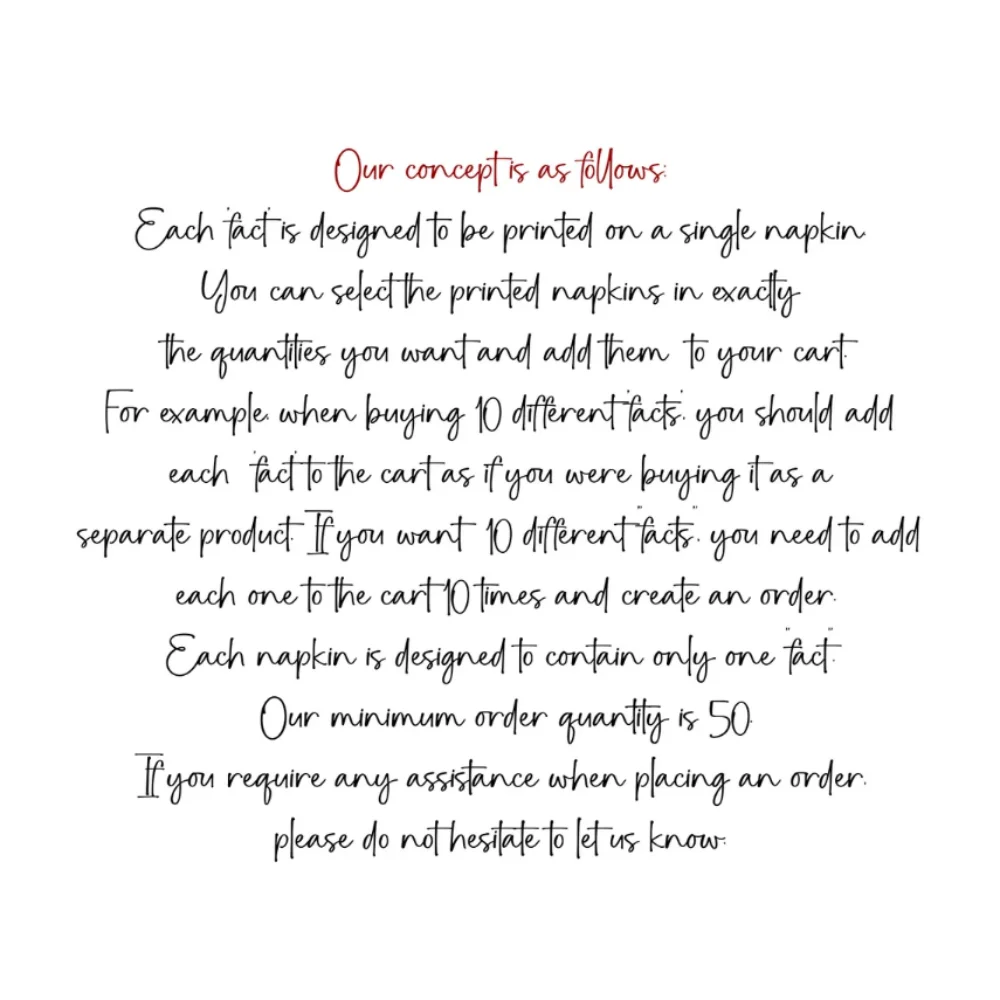 Our concept is as follows:
Each 'fact' is designed to be printed on a single napkin.
You can select the printed napkins in exactly
the quantities you want and add them to your cart.
For example, when buying 10 different 'facts', you should add
each 'fact' to the cart as if you were buying it as a
separate product. If you want 10 different "facts", you need to add
each one to the cart 10 times and create an order.
Each napkin is designed to contain only one "fact".
Our minimum order quantity is 50.
If you require any assistance when placing an order,
please do not hesitate to let us know.